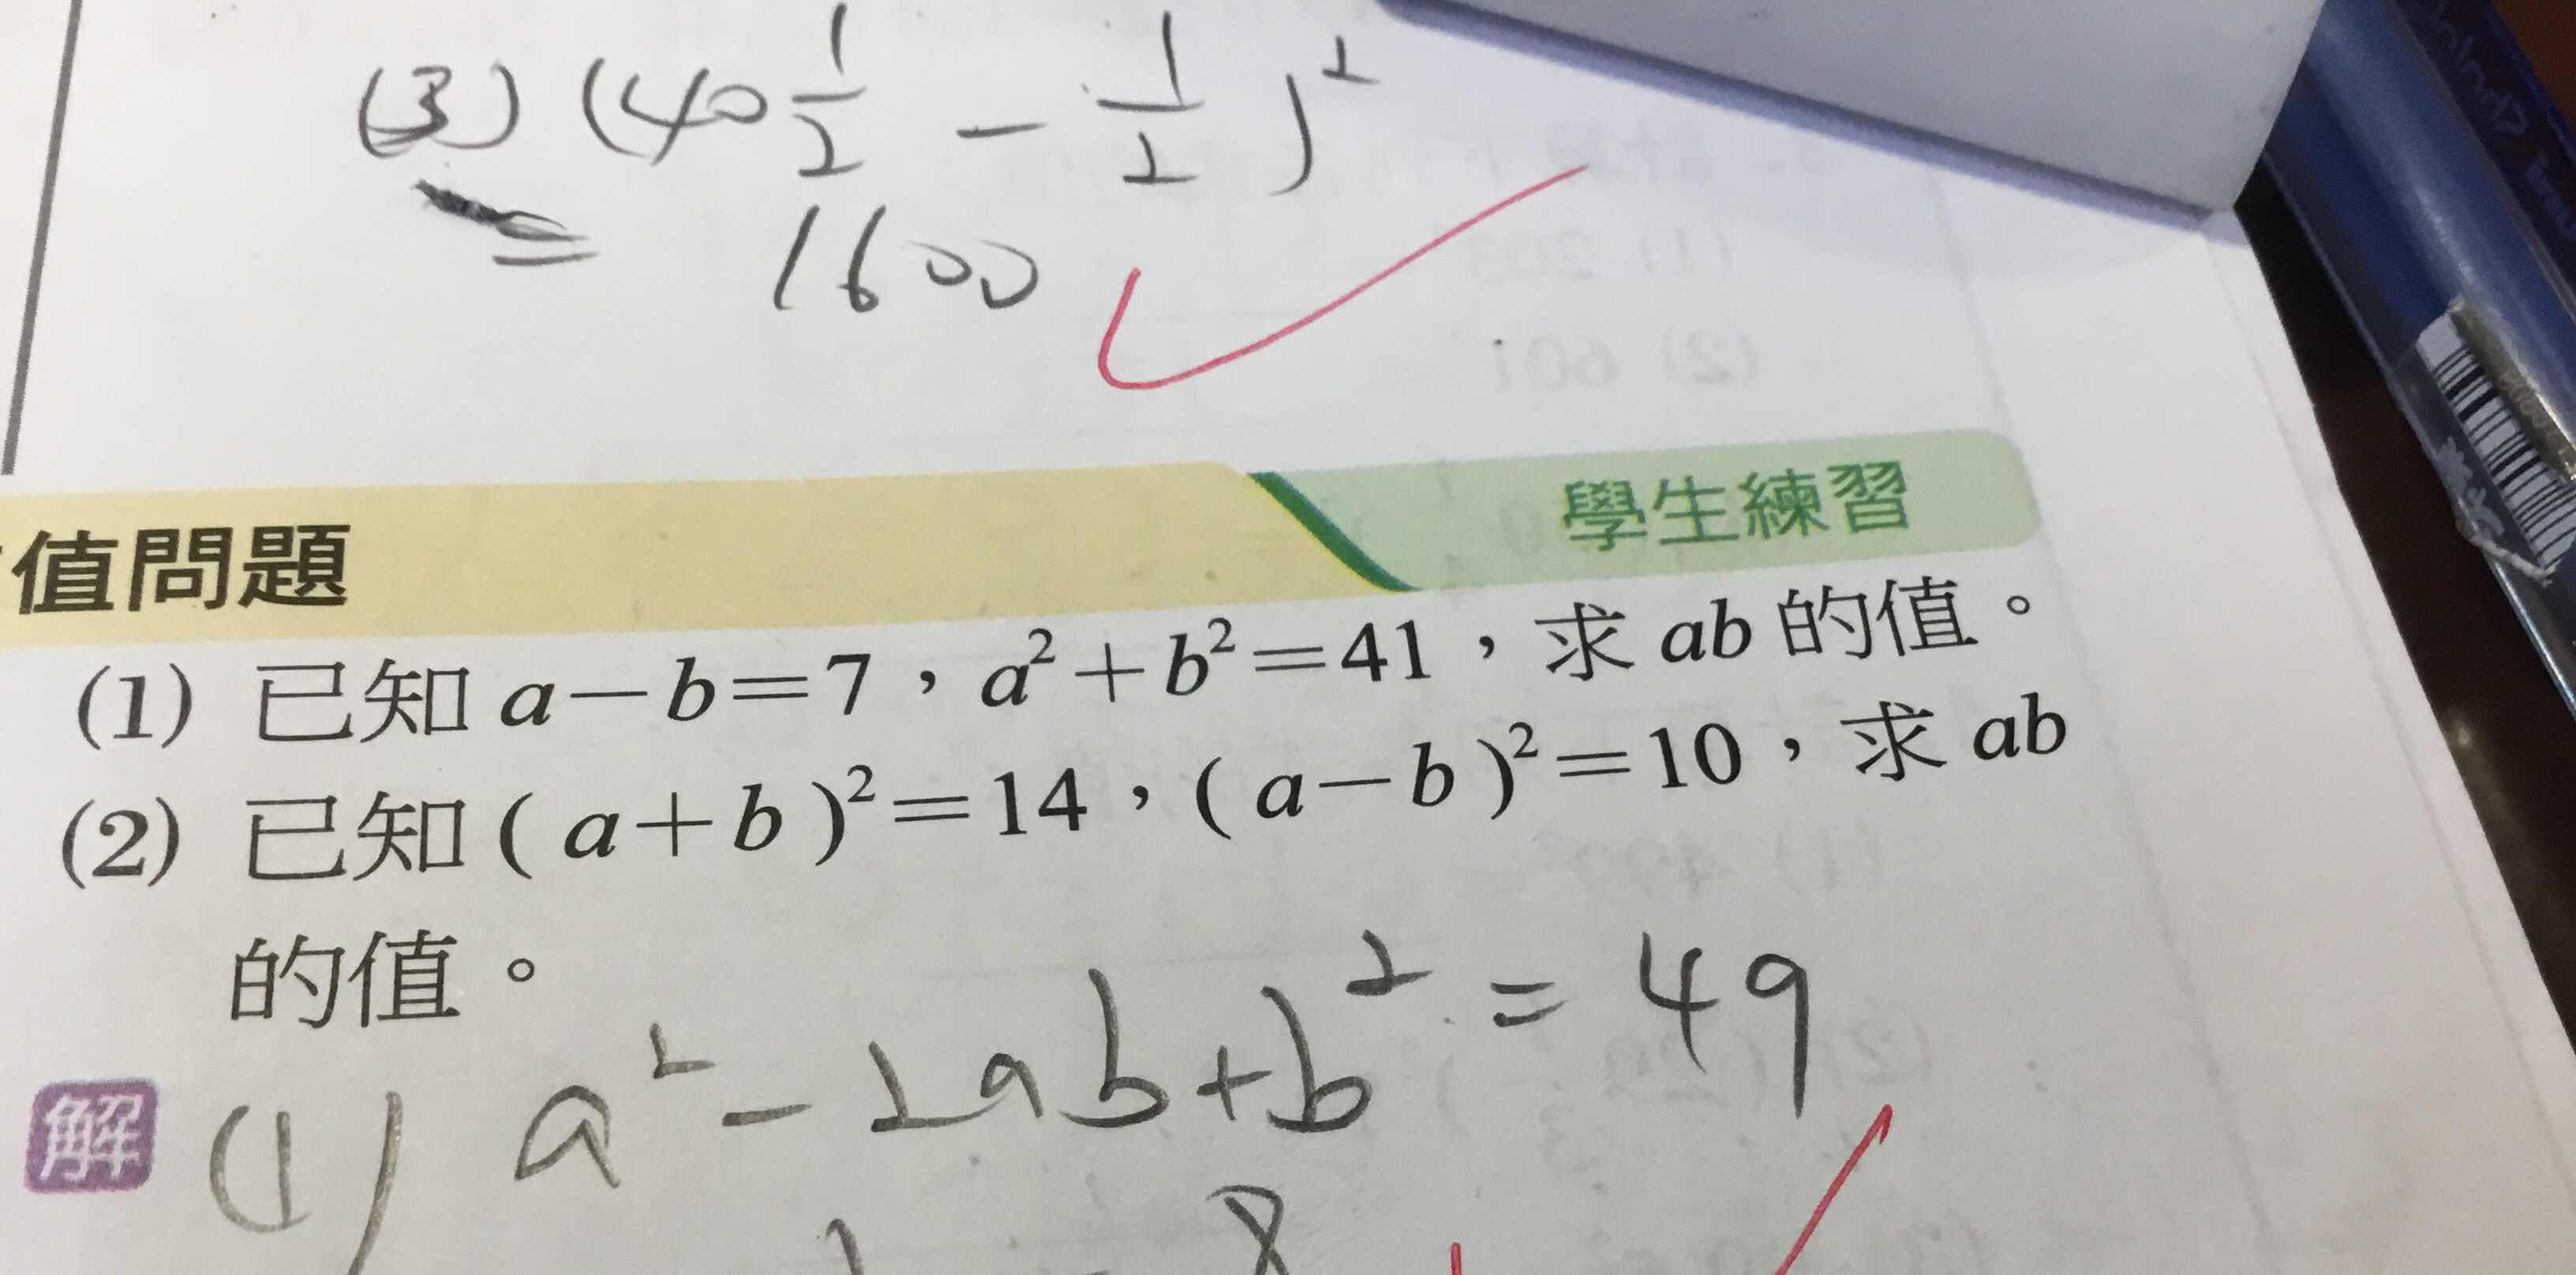 (3) (40 1/2 - 1/2)²
= 1600
值問題
學生練習
(1) 已知 a－b＝7，a²＋b²＝41，求 ab 的值。
(2) 已知 ( a＋b )²＝14，( a－b )²＝10，求 ab
的值。
解 (1) a² - 2ab + b² = 49